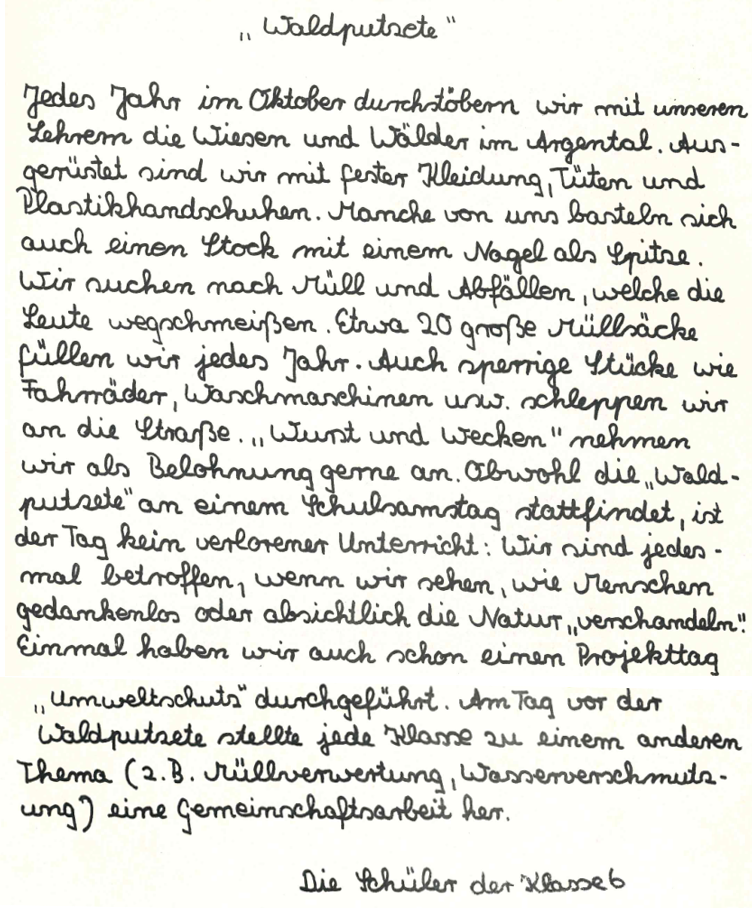 „Waldputzete"
Jedes Jahr im Oktober durchstöbern wir mit unseren
Lehrern die Wiesen und Wälder im Argental. Aus-
gerüstet sind wir mit fester Kleidung, Tüten und
Plastikhandschuhen. Manche von uns basteln sich
auch einen Stock mit einem Nagel als Spitze.
Wir suchen nach Müll und Abfällen, welche die
Leute wegschmeißen. Etwa 20 große Müllsäcke
füllen wir jedes Jahr. Auch sperrige Stücke wie
Fahrräder, Waschmaschinen usw. schleppen wir
an die Straße. „Wurst und Wecken" nehmen
wir als Belohnung gerne an. Obwohl die „Wald-
putzete" an einem Schulsamstag stattfindet, ist
der Tag kein verlorener Unterricht: Wir sind jedes-
mal betroffen, wenn wir sehen, wie Menschen
gedankenlos oder absichtlich die Natur „verschandeln".
Einmal haben wir auch schon einen Projekttag
„Umweltschutz" durchgeführt. Am Tag vor der
Waldputzete stellte jede Klasse zu einem anderen
Thema (z.B. Müllverwertung, Wasserverschmutz-
ung) eine Gemeinschaftsarbeit her.
Die Schüler der Klasse 6